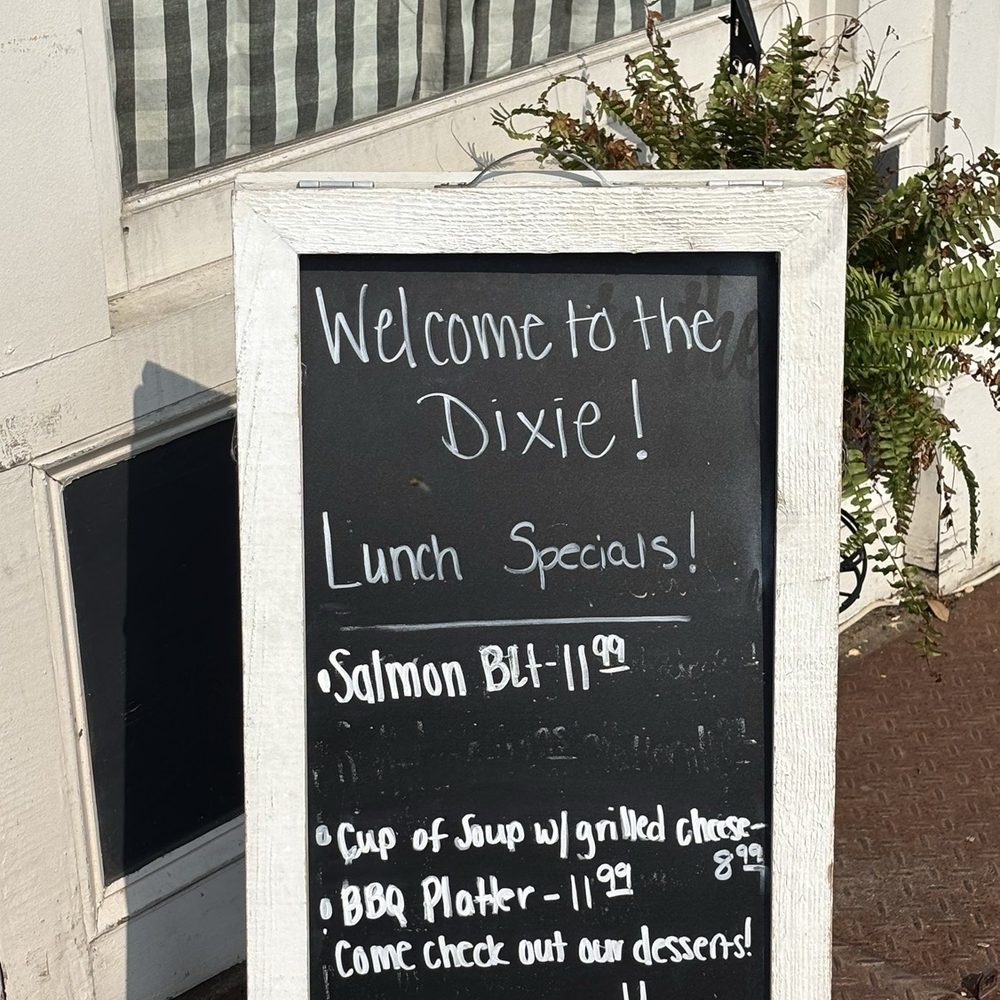 Welcome to the
Dixie!
Lunch Specials!
•Salmon BLt-11.99
•Cup of Soup w/grilled cheese-
8.99
•BBQ Platter-11.99
Come check out our desserts!